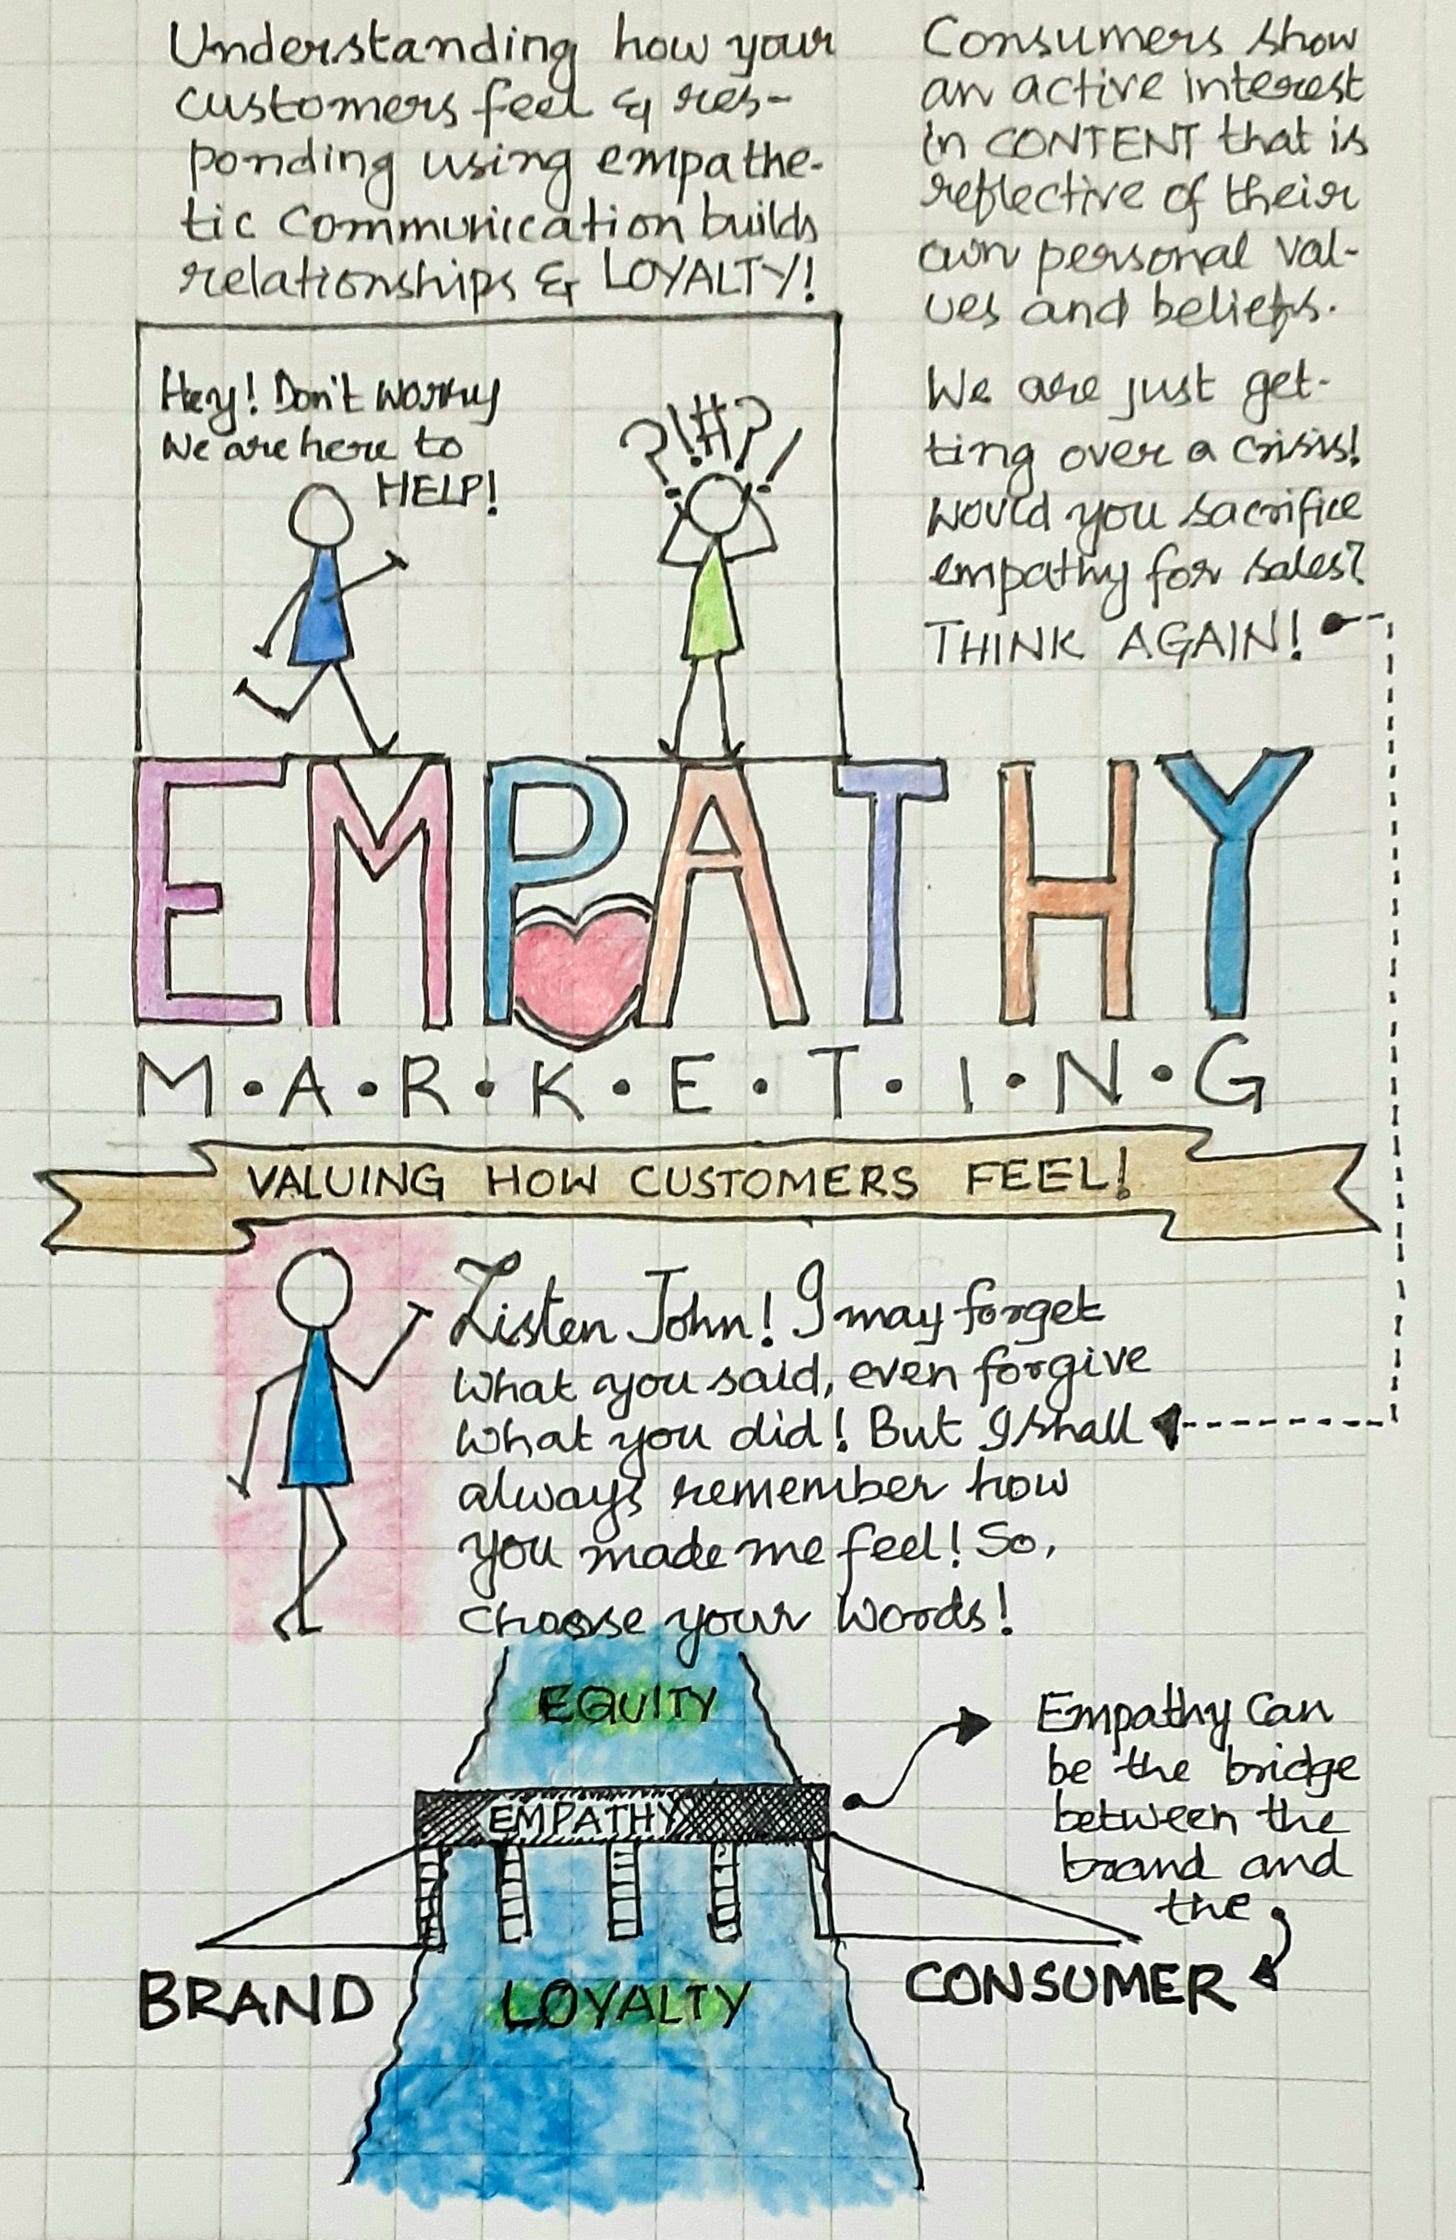 Understanding how your
customers feel & res-
ponding using empathe-
tic communication builds
relationships & LOYALTY!
Consumers show
an active interest
in CONTENT that is
reflective of their
own personal val-
ues and beliefs.
We are just get-
ting over a crisis!
Would you sacrifice
empathy for sales?
THINK AGAIN!
Hey! Don't worry
We are here to
HELP!
?!#?!
EMPATHY
M•A•R•K•E•T•I•N•G
VALUING HOW CUSTOMERS FEEL!
Listen John! I may forget
what you said, even forgive
what you did! But I shall
always remember how
you made me feel! So,
choose your words!
EQUITY
EMPATHY
Empathy can
be the bridge
between the
brand and
the
BRAND
LOYALTY
CONSUMER